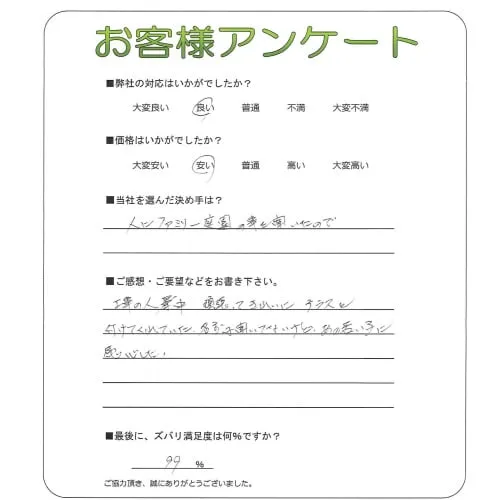 お客様アンケート
■弊社の対応はいかがでしたか？
大変良い 良い 普通 不満 大変不満
■価格はいかがでしたか？
大変安い 安い 普通 高い 大変高い
■当社を選んだ決め手は？
人にファミリー庭園の事を聞いたので
■ご感想・ご要望などをお書き下さい。
工事の人 暑中 頑張ってきれいに テラスを
付けてくれていた、名前は聞いてないけど、あの若い子に
感心した！
■最後に、ズバリ満足度は何％ですか？
99 ％
ご協力頂き、誠にありがとうございました。